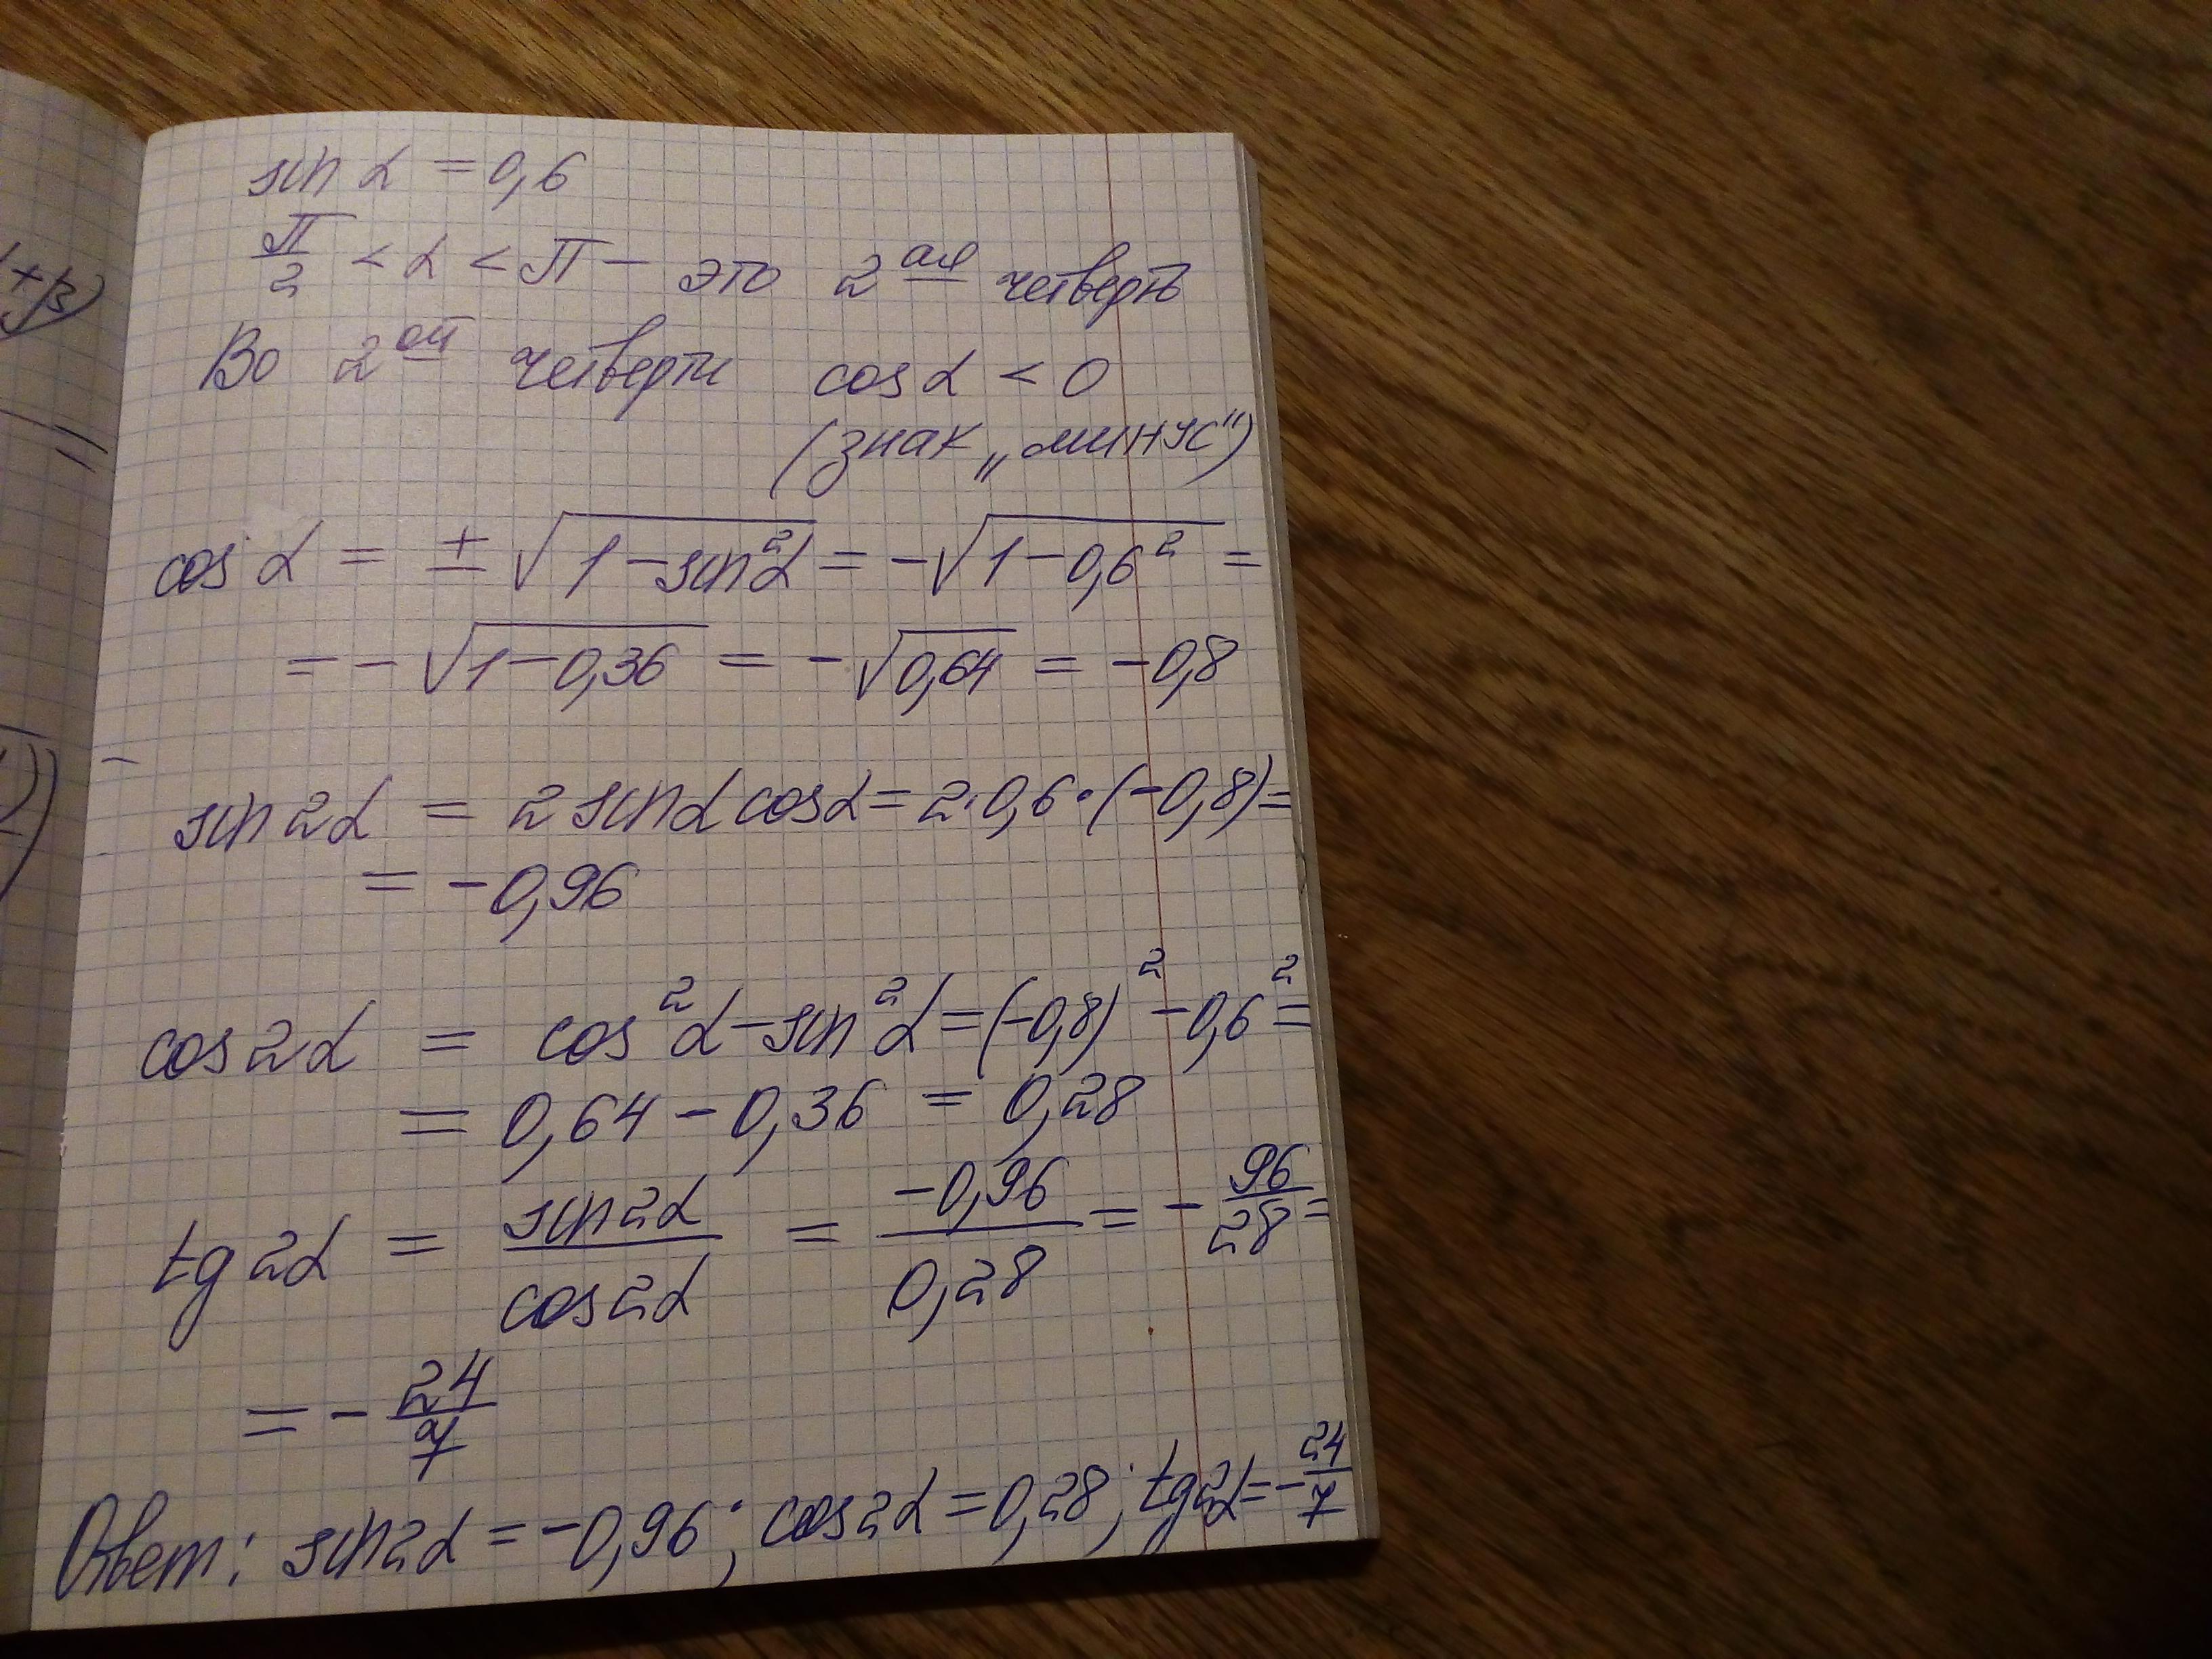 sin α = 0,6
π/2 < α < π — это 2ая четверть
Во 2ой четверти cos α < 0
(знак „минус")
cos α = ± √(1 − sin²α) = −√(1 − 0,6²) =
= −√(1 − 0,36) = −√0,64 = −0,8
sin 2α = 2 sin α cos α = 2·0,6·(−0,8) =
= −0,96
cos 2α = cos²α − sin²α = (−0,8)² − 0,6² =
= 0,64 − 0,36 = 0,28
tg 2α = sin 2α / cos 2α = −0,96 / 0,28 = − 96/28 =
= − 24/7
Ответ: sin 2α = −0,96; cos 2α = 0,28; tg 2α = − 24/7